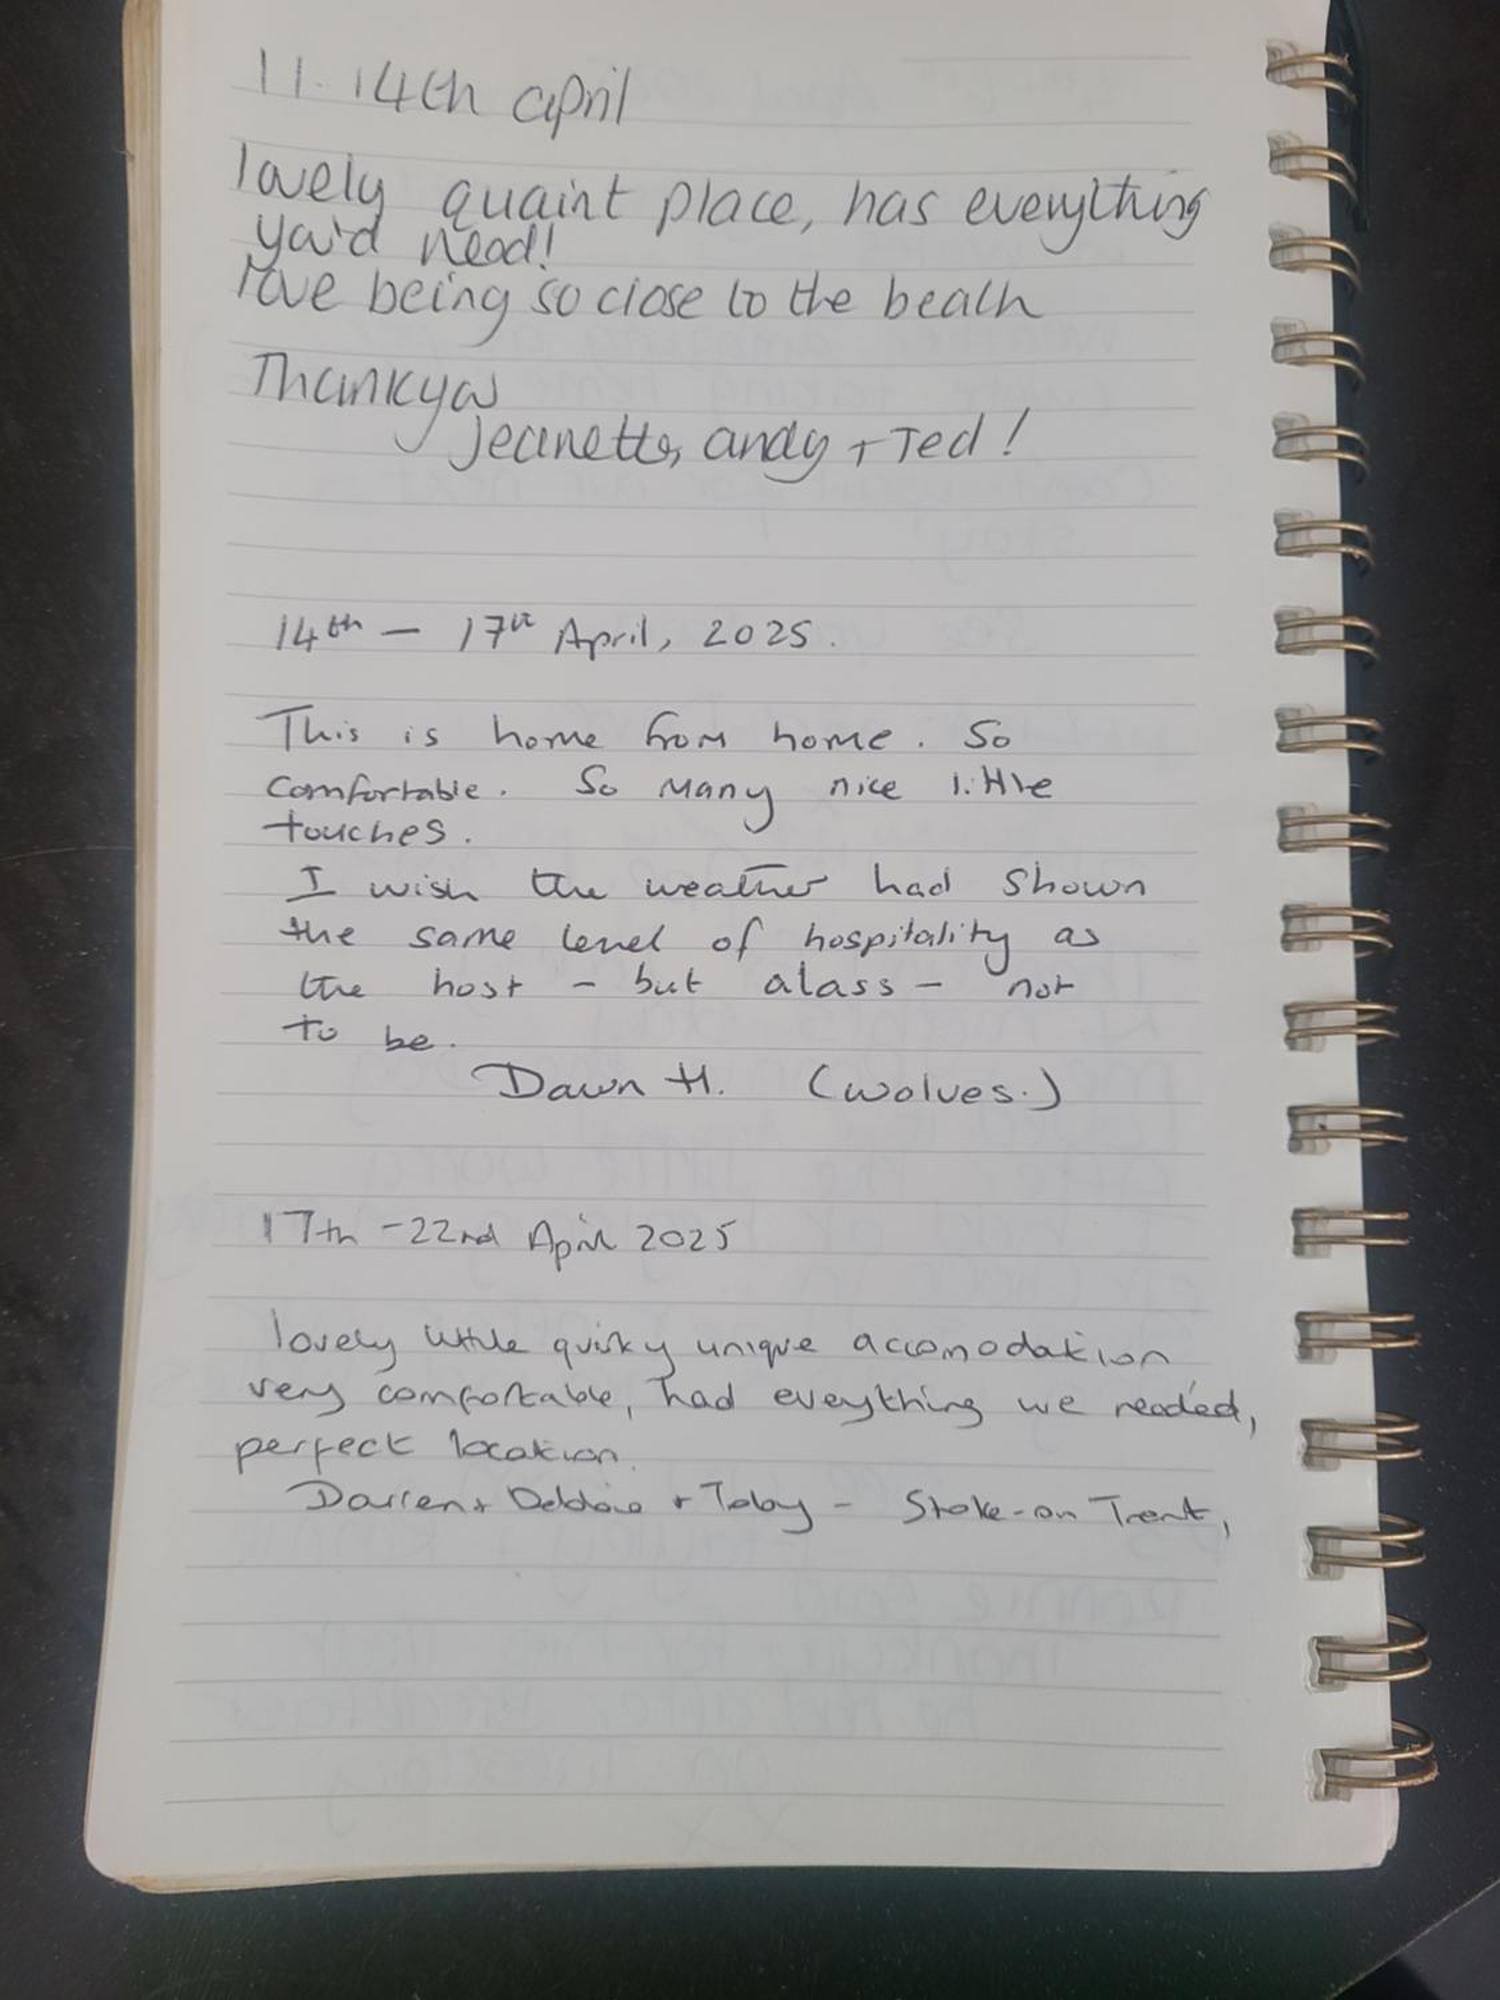 11-14th april
lovely quaint place, has everything
you'd need!
love being so close to the beach
Thankyou
Jeanette, andy + Ted!
14th — 17th April, 2025.
This is home from home. So
comfortable. So many nice little
touches.
I wish the weather had shown
the same level of hospitality as
the host - but alass - not
to be.
Dawn H. (Wolves.)
17th -22nd April 2025
lovely little quirky unique accomodation
very comfortable, had everything we needed,
perfect location.
Darren + Debbie + Toby - Stoke-on Trent,